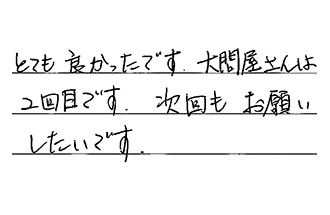 とても良かったです. 大問屋さんは
2回目です. 次回もお願い
したいです.